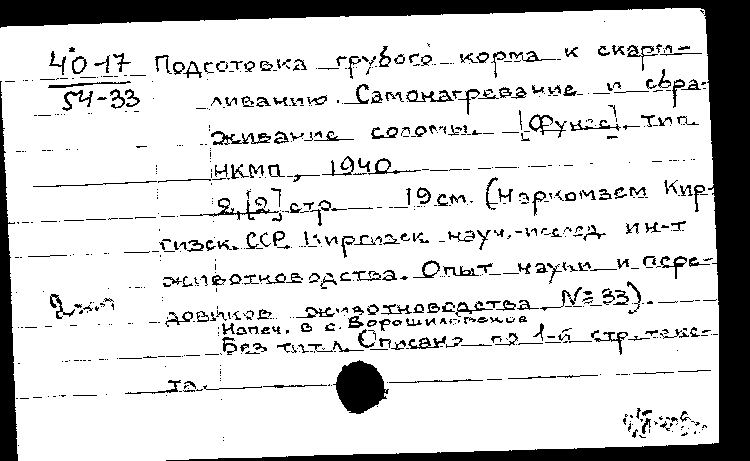 40-17 Подготовка грубого корма к скарм-
54-33 ливанию. Самонагревание и сбра-
живание соломы. [Фунзе]. тип.
НКМП, 1940.
2, [2] стр. 19 см. (Наркомзем Кир-
гизск. ССР. Киргизск. науч.-исслед. ин-т
животноводства. Опыт науки и пере-
довиков животноводства. № 33).
Напеч. в с. Ворошиловское
Без тит. л. Описано по 1-й стр. текс-
та.